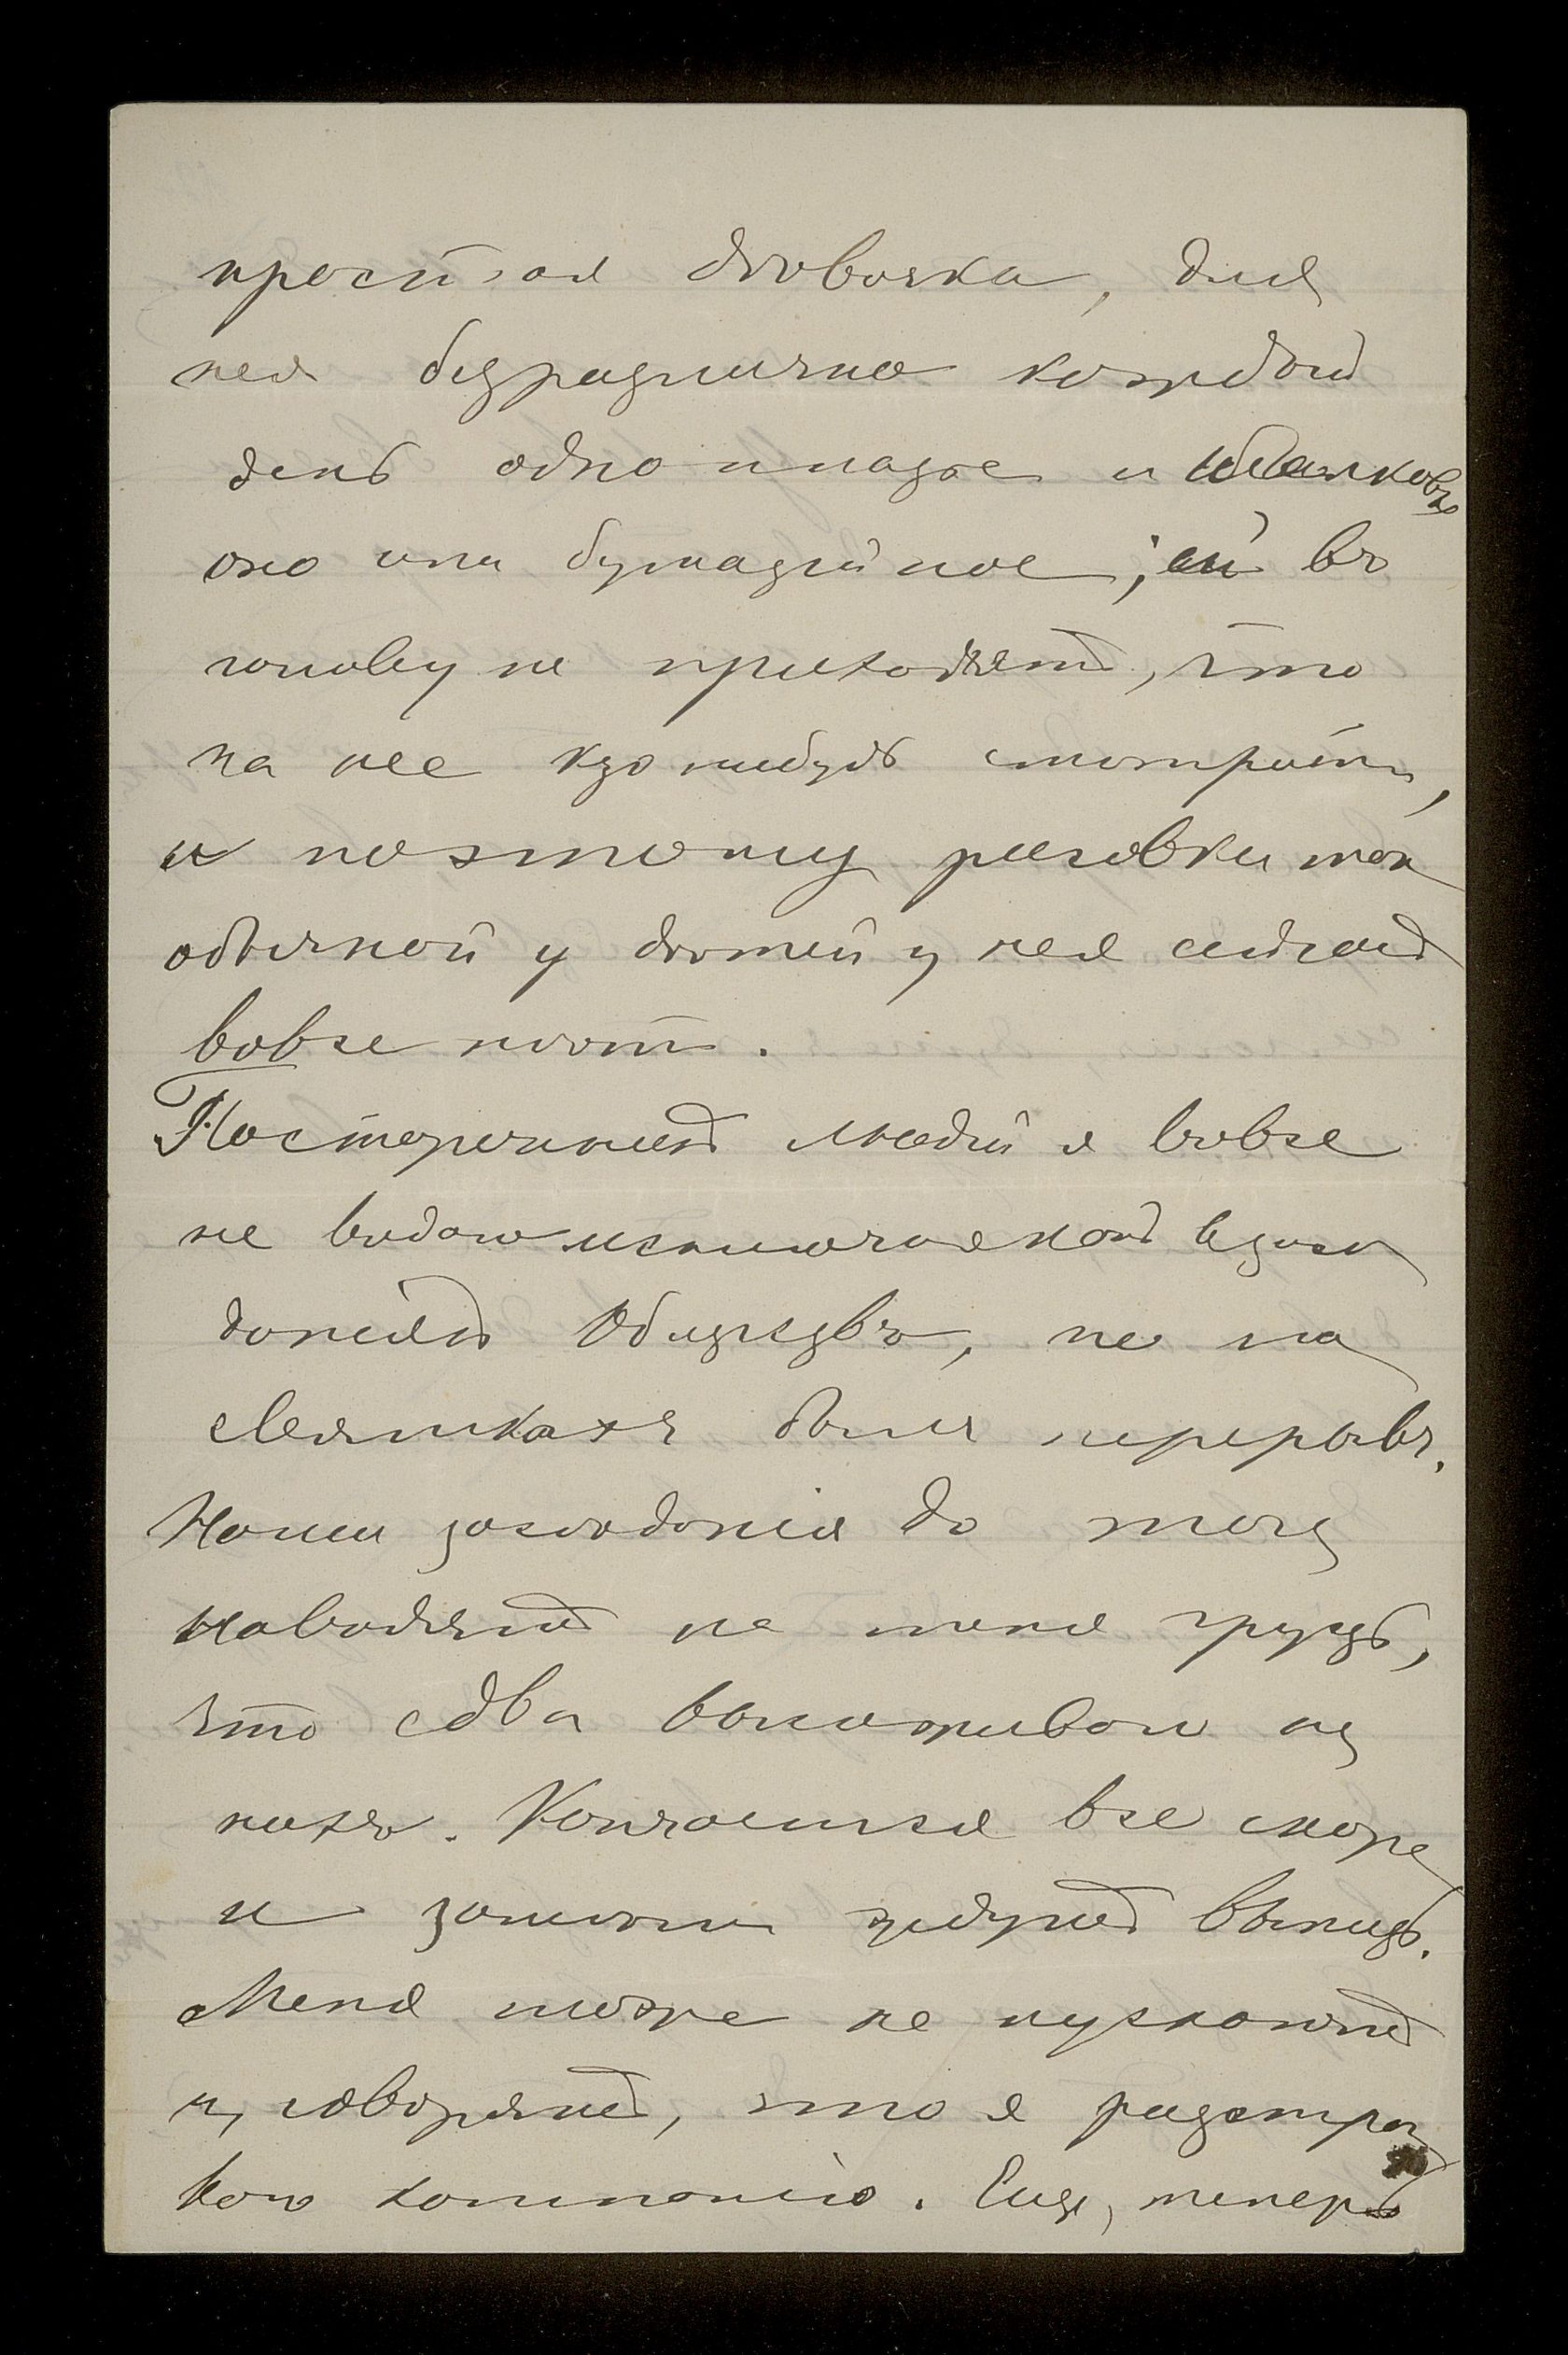 простая девочка, для
нея безразлично каждый
день одно платье и шелковое
оно или бумазейное, ей въ
голову не приходятъ, что
на нее кто нибудь смотритъ,
и поэтому рисовки так
обычной у детей у нея сидтъ
вовсе нетъ.
Постороннихъ людей я вовсе
не видаю исключая конъ
Обидзевъ, не на
святкахъ былъ перерывъ.
Наши заседанія до того
наводятъ не меня грусть,
что едва высиживаю на
нихъ. Кончается все скоре
и затемъ идутъ винтъ.
Меня тоже не пускаютъ
и, говорятъ, что я разстраи
ваю компанію. Еще, теперь